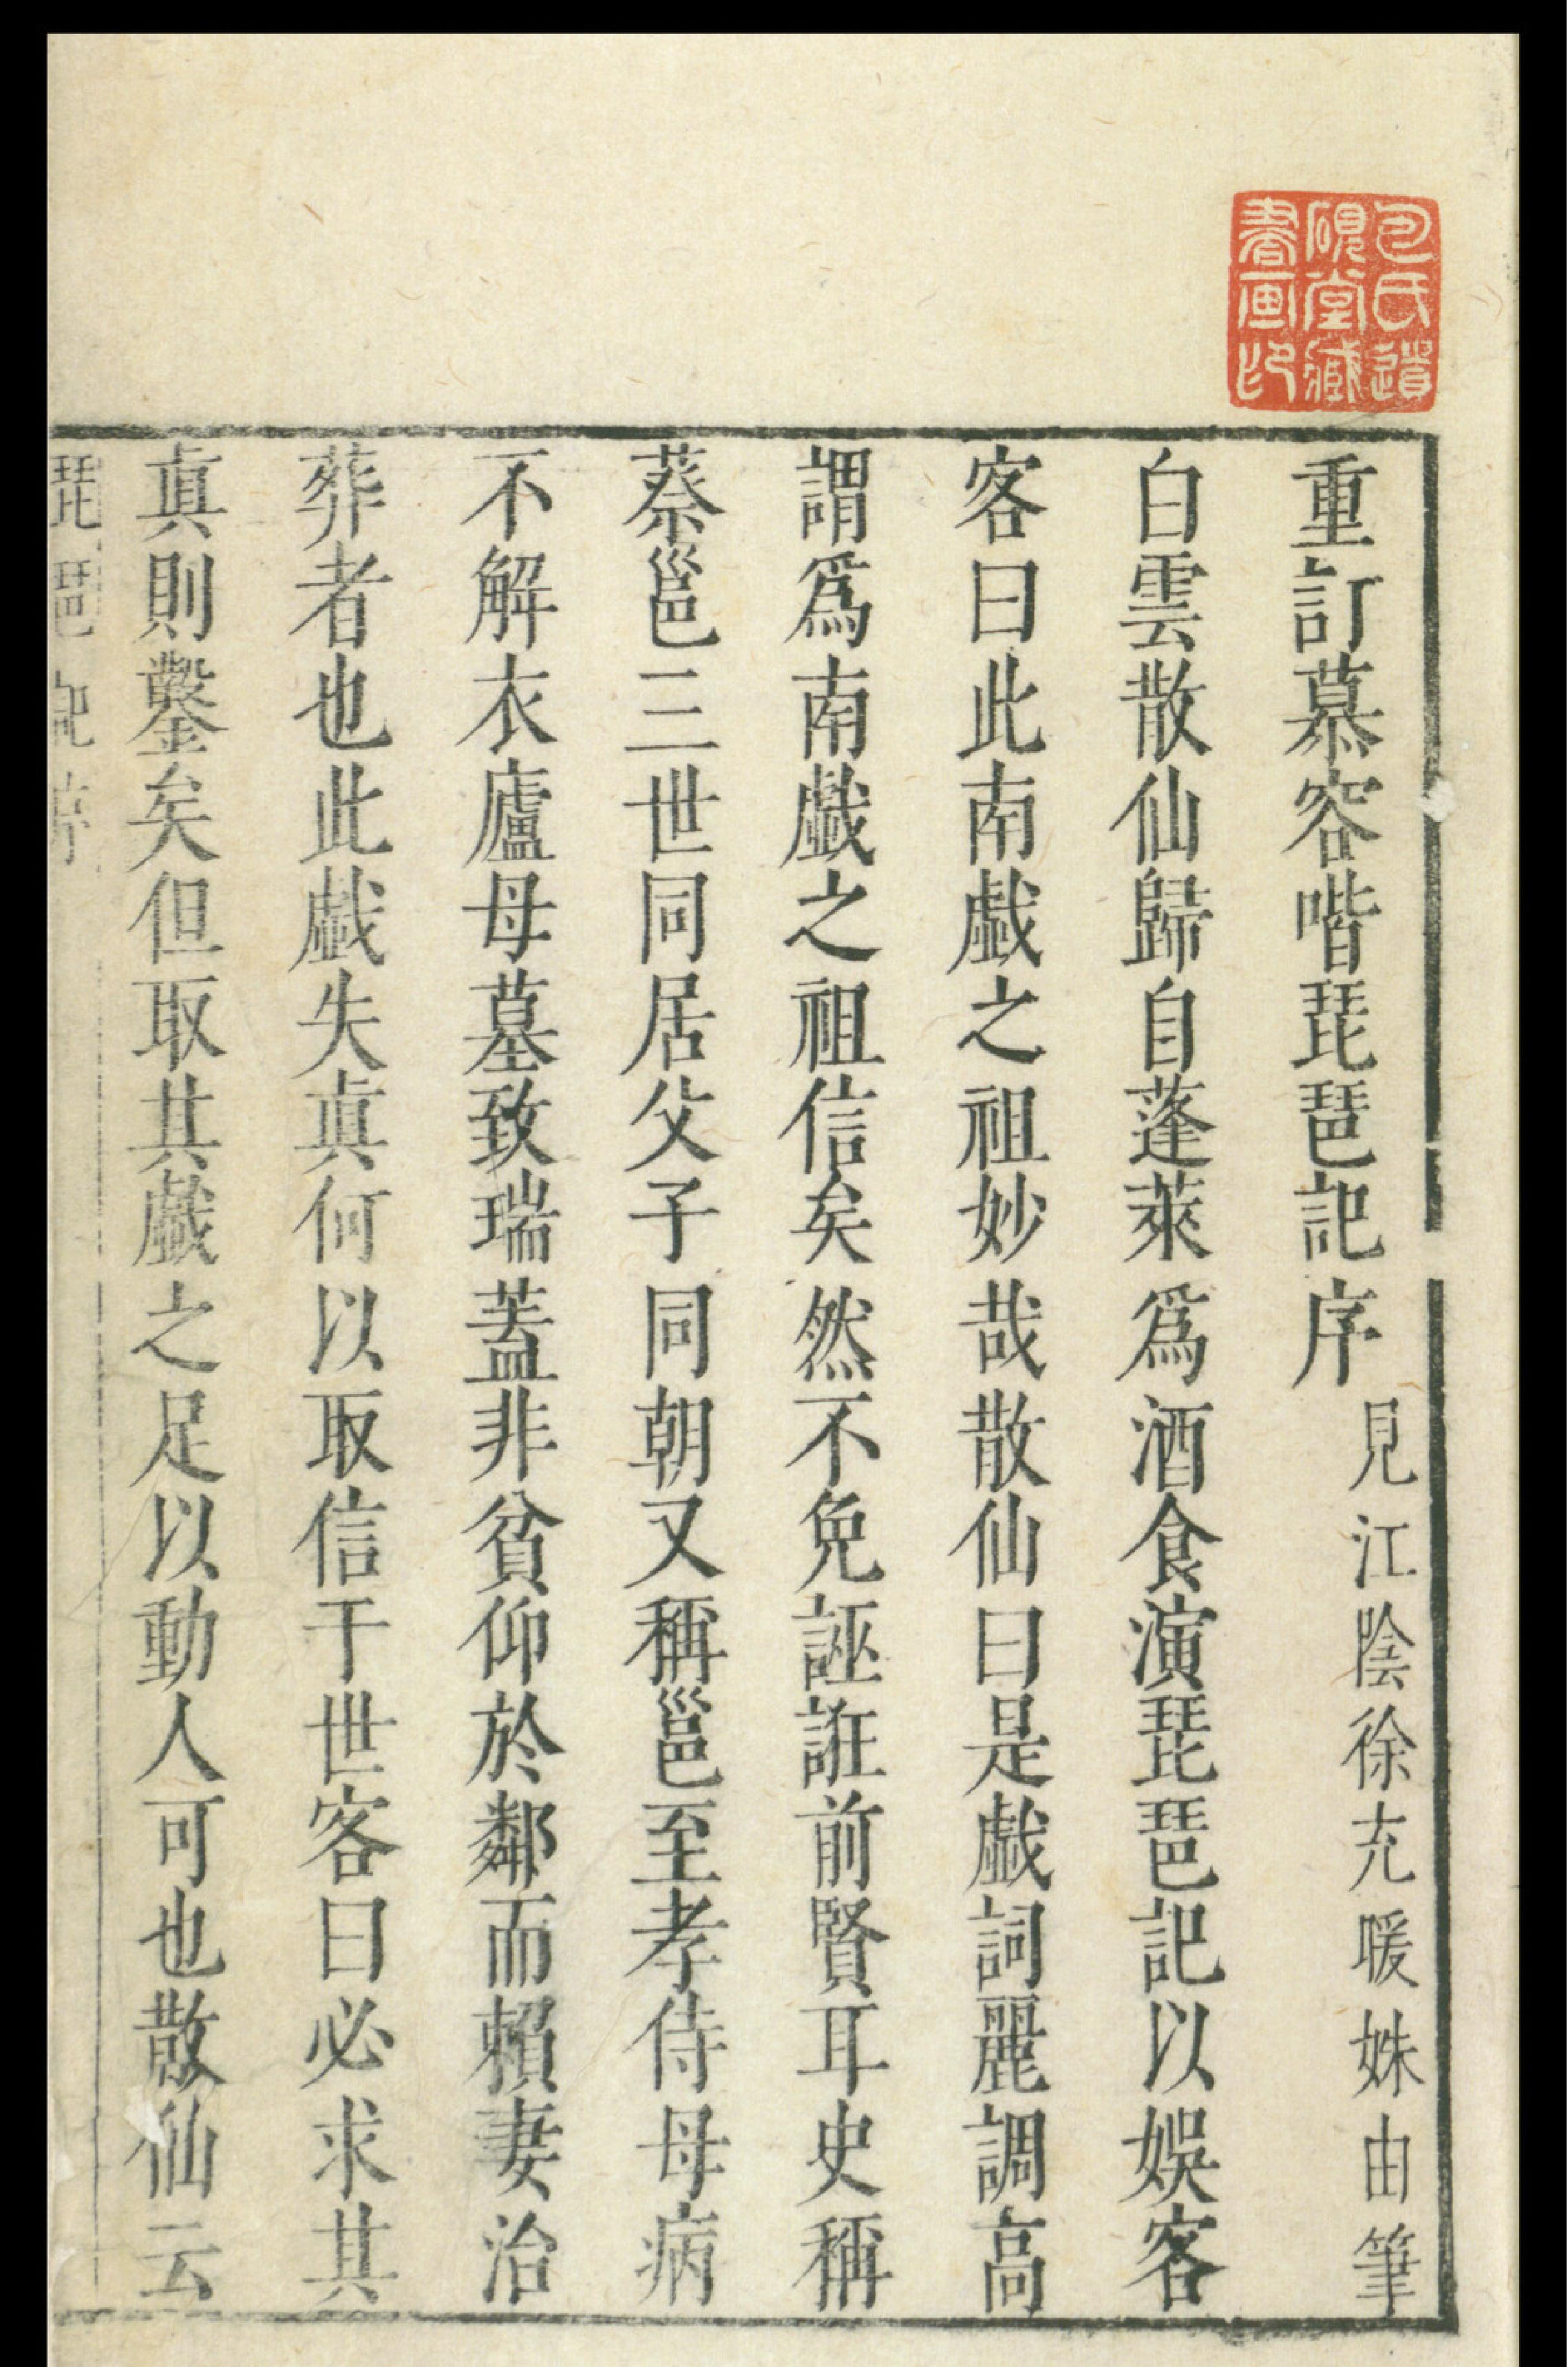 包氏遺
硯堂藏
書画印
重訂慕容喈琵琶記序
見江陰徐充暖姝由筆
白雲散仙歸自蓬萊爲酒食演琵琶記以娛客
客曰此南戱之祖妙哉散仙曰是戱詞麗調高
謂爲南戱之祖信矣然不免誣誑前賢耳史稱
蔡邕三世同居父子同朝又稱邕至孝侍母病
不解衣廬母墓致瑞蓋非貧仰於鄰而賴妻治
葬者也此戱失眞何以取信于世客曰必求其
眞則鑿矣但取其戱之足以動人可也散仙云
琵琶記序